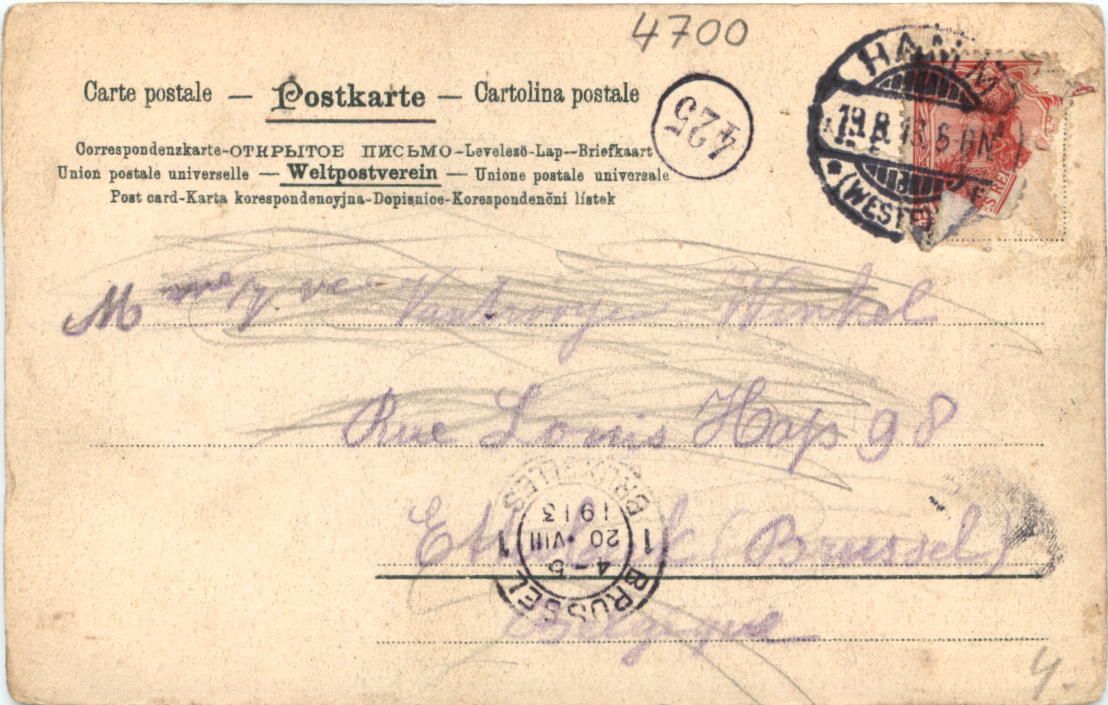 4700
Carte postale — Postkarte — Cartolina postale
Correspondenzkarte-ОТКРЫТОЕ ПИСЬМО-Levelező-Lap--Briefkaart
Union postale universelle — Weltpostverein — Unione postale universale
Post card-Karta korespondencyjna-Dopisnice-Korespondenční lístek
425
HAMM
19.8.13. 5-6N
(WESTF
S REI
M
Winkel
Rue Louis Hap 98
(Brussel)
Belgique
BRUSSEL
4-5
20 VIII
1913
1 1
BRUXELLES
4.